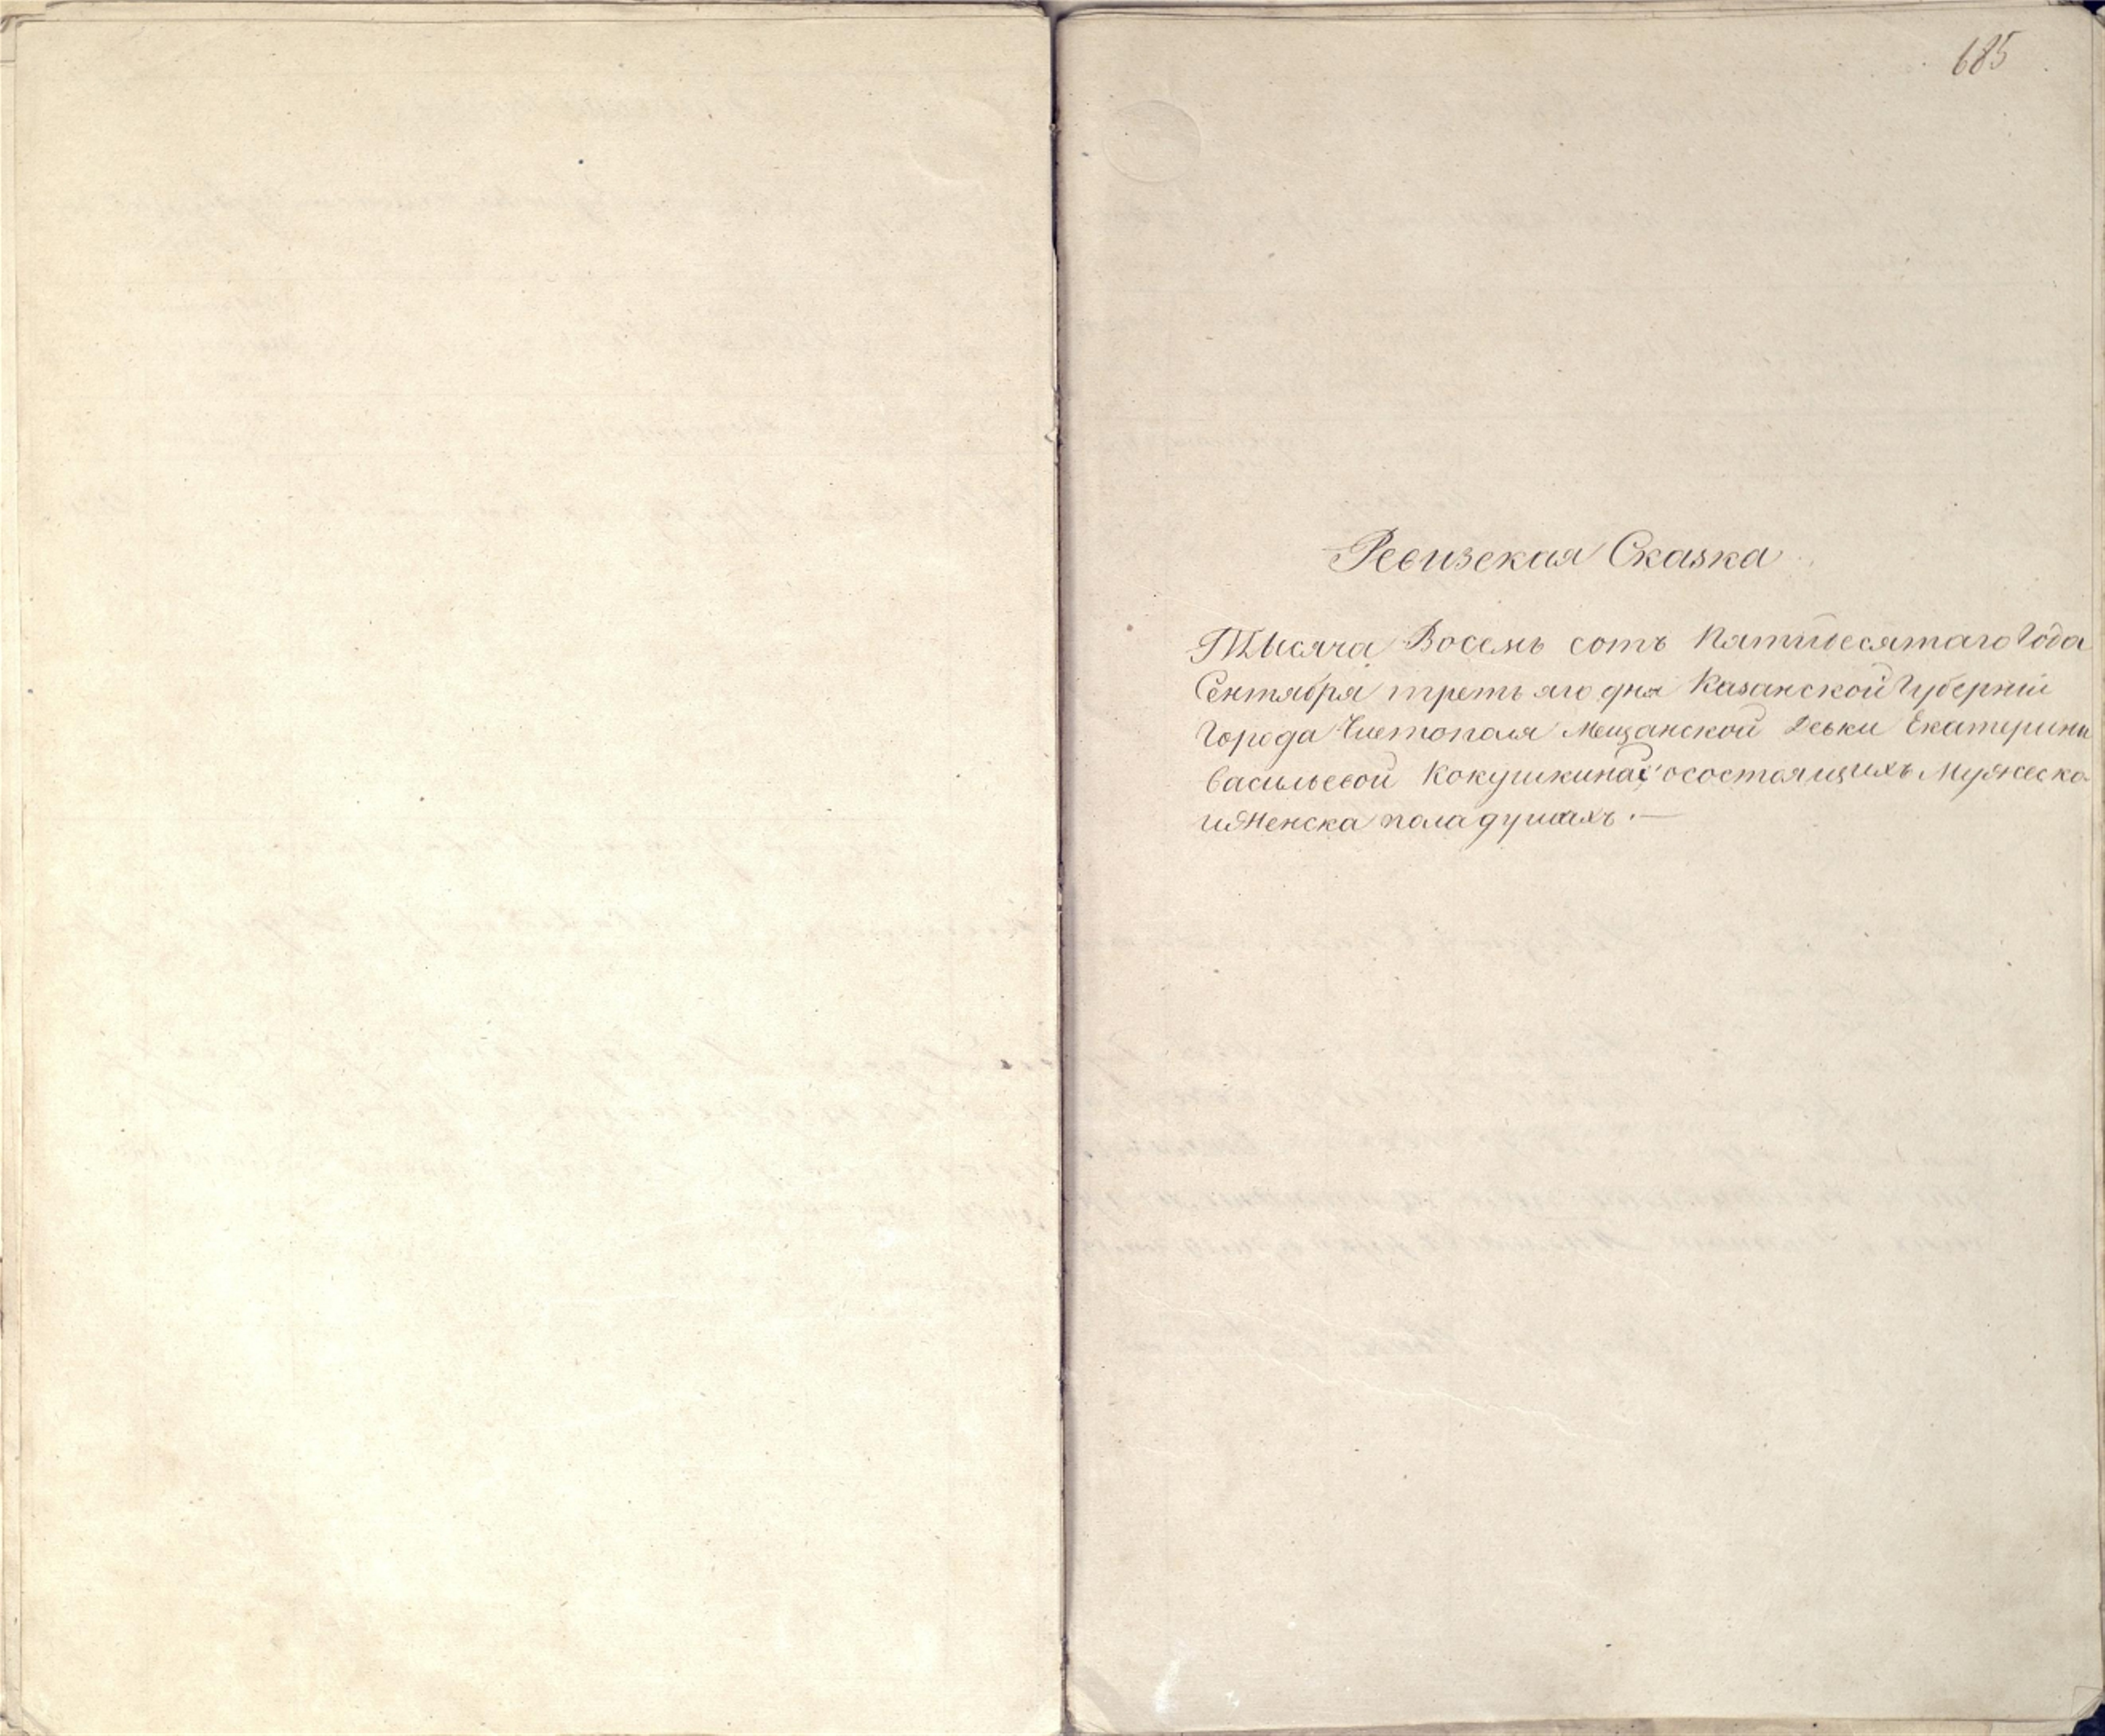 685
Ревизская Сказка
Тысяча Восемь сотъ Пятидесятаго Года
Сентября третьяго дня Казанской Губерніи
Города Чистополя Мещанской Девки Екатерины
Васильевой Кокушкиной осостоящихъ Мужеска
и Женска пола душахъ .—